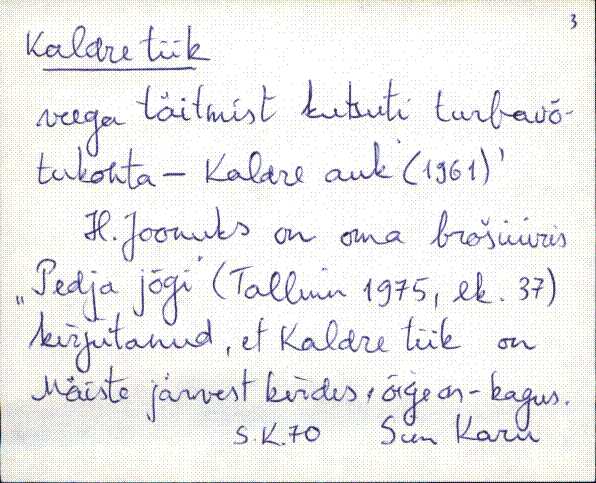 3
Kaldre tiik
veega täitmist kutsuti turbavõ-
tukohta - Kaldre auk (1961)
H. Joonuks on oma brošüüris
„Pedja jõgi" (Tallinn 1975, lk. 37)
kirjutanud, et Kaldre tiik on
Mäiste järvest kirdes, õige on - kagus.
S.K.70 Siin Karu